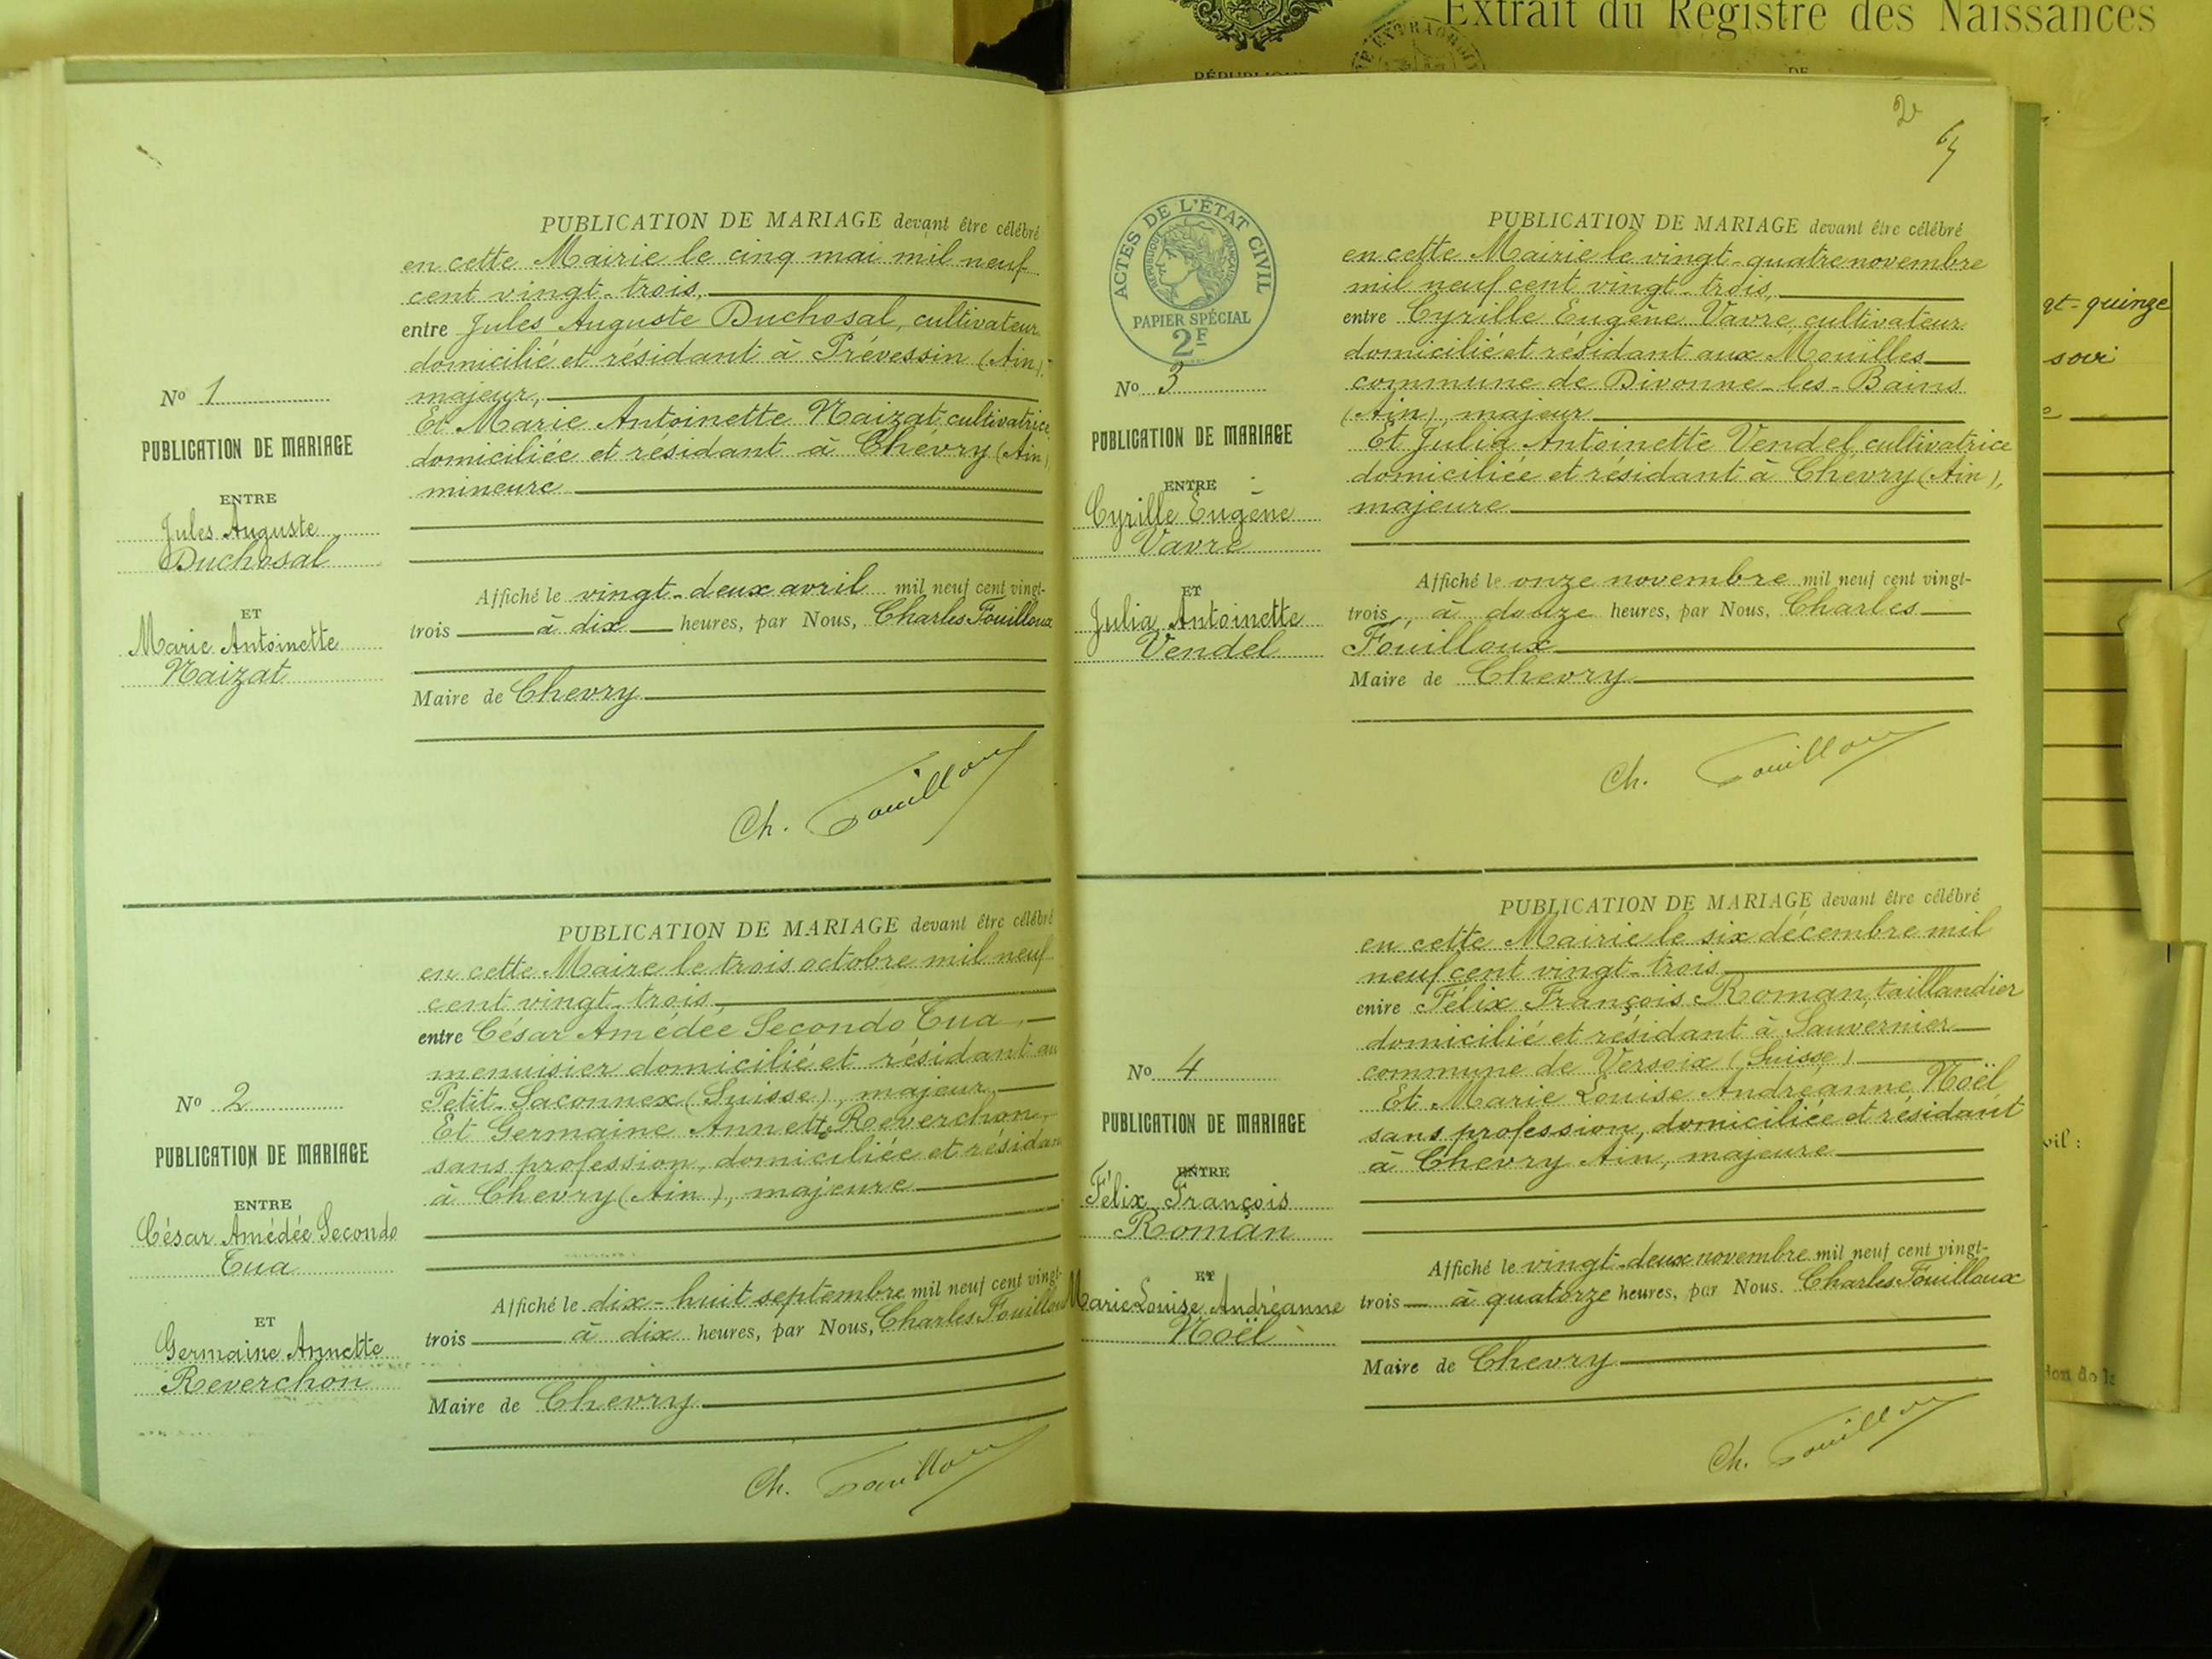 PUBLICATION DE MARIAGE devant être célébré
en cette Mairie le cinq mai mil neuf
cent vingt-trois,
entre Jules Auguste Duchosal, cultivateur
domicilié et résidant à Prévessin (Ain),
majeur,
Et Marie Antoinette Naizat, cultivatrice
domiciliée et résidant à Chevry (Ain)
mineure
Nº 1
PUBLICATION DE MARIAGE
ENTRE
Jules Auguste
Duchosal
ET
Marie Antoinette
Naizat
Affiché le vingt-deux avril mil neuf cent vingt-
trois à dix heures, par Nous, Charles Fouilloux
Maire de Chevry
Ch. Fouilloux
PUBLICATION DE MARIAGE devant être célébré
en cette Maire le trois octobre mil neuf
cent vingt-trois
entre César Amédée Secondo Tua,
menuisier domicilié et résidant au
Petit-Saconnex (Suisse), majeur,
Et Germaine Annette Reverchon,
sans profession, domiciliée et résidan
à Chevry (Ain), majeure
Nº 2
PUBLICATION DE MARIAGE
ENTRE
César Amédée Secondo
Tua
ET
Germaine Annette
Reverchon
Affiché le dix-huit septembre mil neuf cent vingt-
trois à dix heures, par Nous, Charles Fouilloux
Maire de Chevry
Ch. Fouilloux
2
67
ACTES DE L'ÉTAT CIVIL
RÉPUBLIQUE FRANÇAISE
PAPIER SPÉCIAL
2F
PUBLICATION DE MARIAGE devant être célébré
en cette Mairie le vingt-quatre novembre
mil neuf cent vingt-trois,
entre Cyrille Eugène Vavre, cultivateur
domicilié et résidant aux Mouilles
commune de Divonne-les-Bains
(Ain), majeur
Et Julia Antoinette Vendel, cultivatrice
domiciliée et résidant à Chevry (Ain),
majeure
Nº 3
PUBLICATION DE MARIAGE
ENTRE
Cyrille Eugène
Vavre
ET
Julia Antoinette
Vendel
Affiché le onze novembre mil neuf cent vingt-
trois, à douze heures, par Nous, Charles
Fouilloux
Maire de Chevry
Ch. Fouilloux
PUBLICATION DE MARIAGE devant être célébré
en cette Mairie le six décembre mil
neuf cent vingt-trois
entre Félix François Roman, taillandier
domicilié et résidant à Sauvernier
commune de Versoix (Suisse)
Et Marie Louise Andréanne Noël
sans profession, domiciliée et résidant
à Chevry Ain, majeure
Nº 4
PUBLICATION DE MARIAGE
ENTRE
Félix François
Roman
ET
Marie Louise Andréanne
Noël
Affiché le vingt-deux novembre mil neuf cent vingt-
trois à quatorze heures, par Nous. Charles Fouilloux
Maire de Chevry
Ch. Fouilloux
Extrait du Registre des Naissances
DE
gt-quinze
soir
vil :